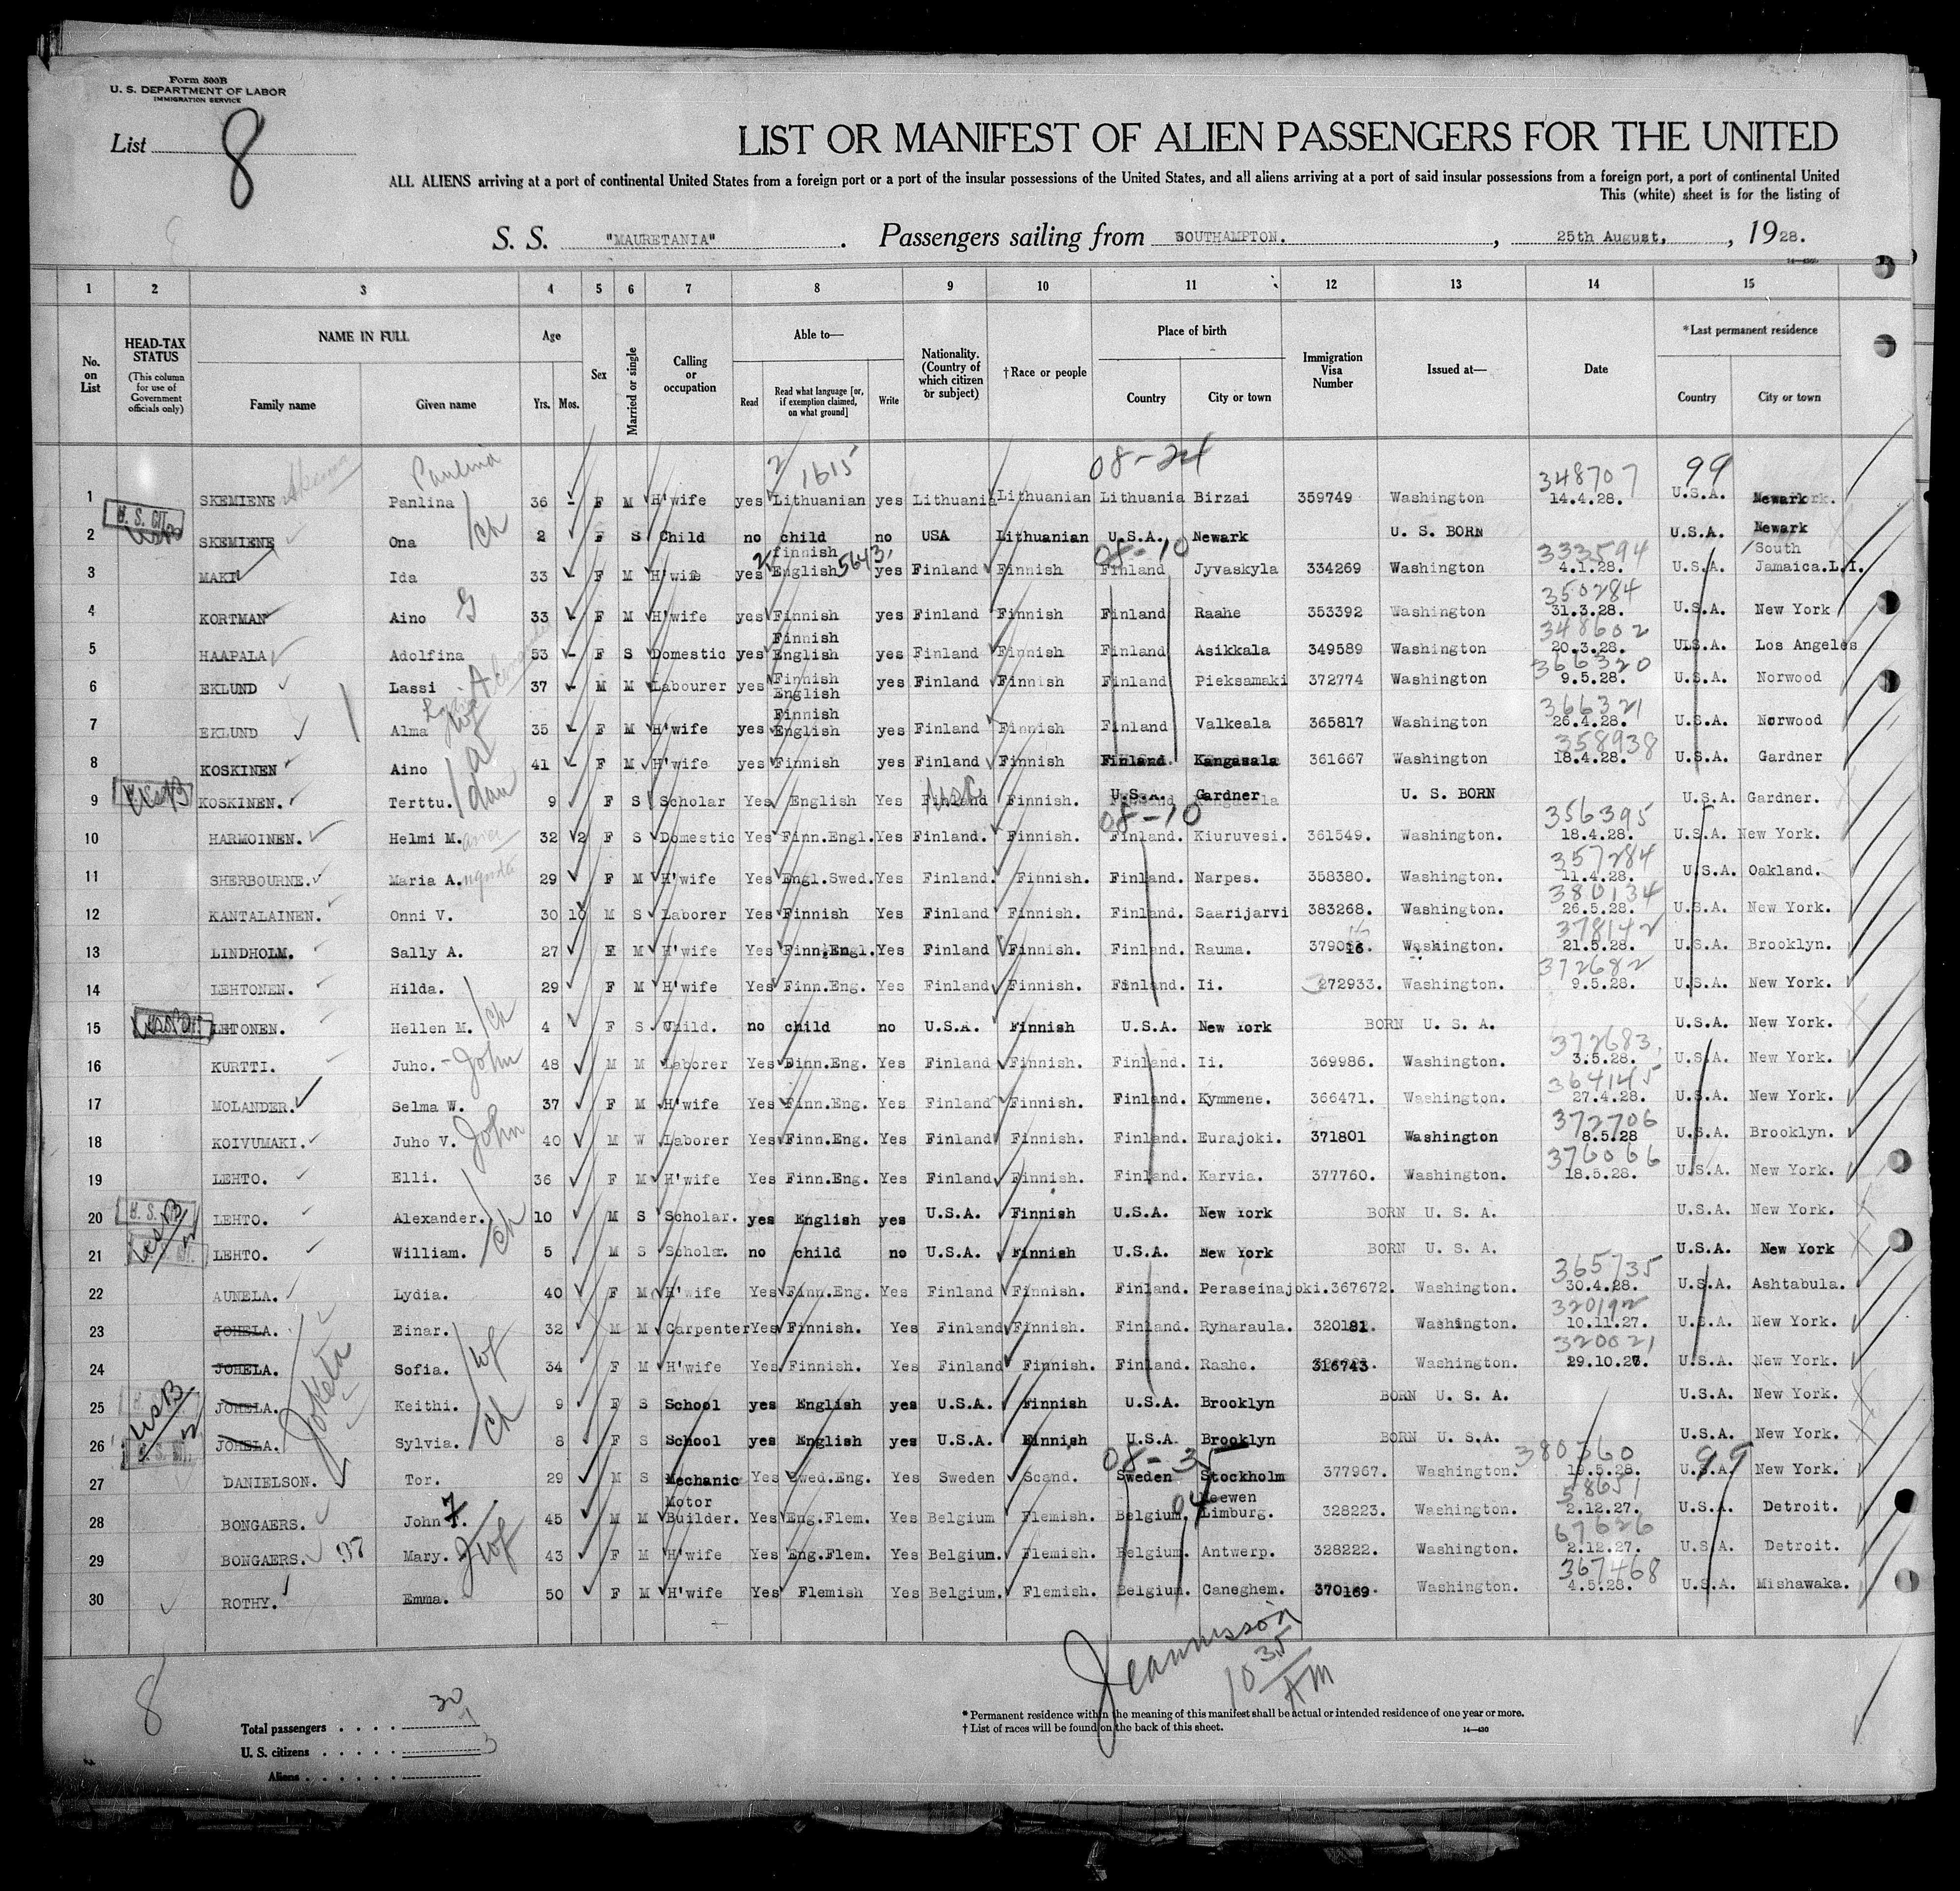 Form 500B
U. S. DEPARTMENT OF LABOR
IMMIGRATION SERVICE
List 8
LIST OR MANIFEST OF ALIEN PASSENGERS FOR THE UNITED
ALL ALIENS arriving at a port of continental United States from a foreign port or a port of the insular possessions of the United States, and all aliens arriving at a port of said insular possessions from a foreign port, a port of continental United
This (white) sheet is for the listing of
S. S. "MAURETANIA". Passengers sailing from SOUTHAMPTON. , 25th August, , 1928.
1 2 3 4 5 6 7 8 9 10 11 12 13 14 15
No. on List
HEAD-TAX STATUS
(This column for use of Government officials only)
NAME IN FULL
Family name Given name
Age
Yrs. Mos.
Sex
Married or single
Calling or occupation
Able to—
Read Read what language [or, if exemption claimed, on what ground] Write
Nationality. (Country of which citizen or subject)
†Race or people
Place of birth
Country City or town
Immigration Visa Number
Issued at—
Date
*Last permanent residence
Country City or town
Paulina 2 1615 08-24 348707 99
1 SKEMIENE Panlina 36 - F M H'wife yes Lithuanian yes Lithuania Lithuanian Lithuania Birzai 359749 Washington 14.4.28. U.S.A. Newark
U. S. CIT.
2 SKEMIENE Ona ch 2 F S Child no child no USA Lithuanian U.S.A. Newark U. S. BORN U.S.A. Newark
finnish 5643 08-10 333594 South
3 MAKI Ida 33 - F M H'wife yes English yes Finland Finnish Finland Jyvaskyla 334269 Washington 4.1.28. U.S.A. Jamaica.L.I.
350284
4 KORTMAN Aino G 33 - F M H'wife yes Finnish yes Finland Finnish Finland Raahe 353392 Washington 31.3.28. U.S.A. New York
Finnish 348602
5 HAAPALA Adolfina 53 - F S Domestic yes English yes Finland Finnish Finland Asikkala 349589 Washington 20.3.28. U.S.A. Los Angeles
Finnish 366320
6 EKLUND Lassi 37 - M M Labourer yes English yes Finland Finnish Finland Pieksamaki 372774 Washington 9.5.28. U.S.A. Norwood
Finnish 366321
7 EKLUND Alma wf 35 - F M H'wife yes English yes Finland Finnish Finland Valkeala 365817 Washington 26.4.28. U.S.A. Norwood
358938
8 KOSKINEN Aino 41 - F M H'wife yes Finnish yes Finland Finnish Finland Kangasala 361667 Washington 18.4.28. U.S.A. Gardner
9 KOSKINEN. Terttu. dau 9 F S Scholar Yes English Yes Finland Finnish. U.S.A. Gardner U. S. BORN U.S.A. Gardner.
08-10 356395
10 HARMOINEN. Helmi M. aria 32 2 F S Domestic Yes Finn.Engl. Yes Finland. Finnish. Finland. Kiuruvesi. 361549. Washington. 18.4.28. U.S.A. New York.
357284
11 SHERBOURNE. Maria A. 29 F M H'wife Yes Engl.Swed. Yes Finland. Finnish. Finland. Narpes. 358380. Washington. 11.4.28. U.S.A. Oakland.
380134
12 KANTALAINEN. Onni V. 30 10 M S Laborer Yes Finnish Yes Finland Finnish. Finland. Saarijarvi 383268. Washington. 26.5.28. U.S.A. New York.
378142
13 LINDHOLM. Sally A. 27 F M H'wife Yes Finn.Engl. Yes Finland Finnish. Finland. Rauma. Washington. 21.5.28. U.S.A. Brooklyn.
372682
14 LEHTONEN. Hilda. 29 F M H'wife Yes Finn.Eng. Yes Finland Finnish. Finland. Ii. 272933. Washington. 9.5.28. U.S.A. New York.
15 LETONEN. Hellen M. ch 4 F S Child. no child no U.S.A. Finnish U.S.A. New York BORN U. S. A. U.S.A. New York.
372683
16 KURTTI. Juho. - John 48 M M Laborer Yes Finn.Eng. Yes Finland Finnish. Finland. Ii. 369986. Washington. 3.5.28. U.S.A. New York.
364145
17 MOLANDER. Selma W. 37 F M H'wife Yes Finn.Eng. Yes Finland Finnish. Finland. Kymmene. 366471. Washington. 27.4.28. U.S.A. New York.
372706
18 KOIVUMAKI. Juho V. John 40 M W Laborer Yes Finn.Eng. Yes Finland Finnish. Finland. Eurajoki. 371801 Washington 8.5.28 U.S.A. Brooklyn.
376066
19 LEHTO. Elli. 36 F M H'wife Yes Finn.Eng. Yes Finland Finnish. Finland. Karvia. 377760. Washington. 18.5.28. U.S.A. New York.
20 LEHTO. Alexander. 10 M S Scholar. yes English yes U.S.A. Finnish U.S.A. New York BORN U. S. A. U.S.A. New York.
ch
21 LEHTO. William. 5 M S Scholar. no child no U.S.A. Finnish U.S.A. New York BORN U. S. A. U.S.A. New York
365735
22 AUNELA. Lydia. 40 F M H'wife Yes Finn.Eng. Yes Finland Finnish. Finland. Peraseinajoki. 367672. Washington. 30.4.28. U.S.A. Ashtabula.
320192
23 JOHELA. Einar. 32 M M Carpenter Yes Finnish. Yes Finland Finnish. Finland. Ryharaula. 320181. Washington. 10.11.27. U.S.A. New York.
Jokela 320021
24 JOHELA. Sofia. wf 34 F M H'wife Yes Finnish. Yes Finland Finnish. Finland. Raahe. 316743 Washington. 29.10.27. U.S.A. New York.
USB
25 JOHELA. Keithi. 9 F S School yes English yes U.S.A. Finnish U.S.A. Brooklyn BORN U. S. A. U.S.A. New York.
ch
26 JOHELA. Sylvia. 8 F S School yes English yes U.S.A. Finnish U.S.A. Brooklyn BORN U. S.A. U.S.A. New York.
08-35 380360 99
27 DANIELSON. Tor. 29 M S Mechanic Yes Swed.Eng. Yes Sweden Scand. Sweden Stockholm 377967. Washington. 19.5.28. U.S.A. New York.
Motor 04 Neewen 58651
28 BONGAERS. John 45 M M Builder. Yes Eng.Flem. Yes Belgium Flemish. Belgium. Limburg. 328223. Washington. 2.12.27. U.S.A. Detroit.
67626
29 BONGAERS. 97 Mary. wf 43 F M H'wife Yes Eng.Flem. Yes Belgium. Flemish. Belgium. Antwerp. 328222. Washington. 2.12.27. U.S.A. Detroit.
367468
30 ROTHY. Emma. 50 F M H'wife Yes Flemish Yes Belgium. Flemish. Belgium. Caneghem. 370169. Washington. 4.5.28. U.S.A. Mishawaka.
10 35 AM
8
Total passengers . . . . 30
U. S. citizens . . . . .
Aliens . . . . . .
* Permanent residence within the meaning of this manifest shall be actual or intended residence of one year or more.
† List of races will be found on the back of this sheet. 14—430